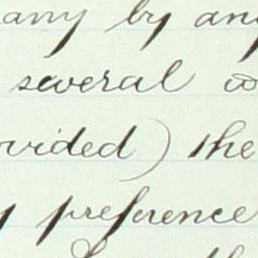 any by any
several
vided) the
preference